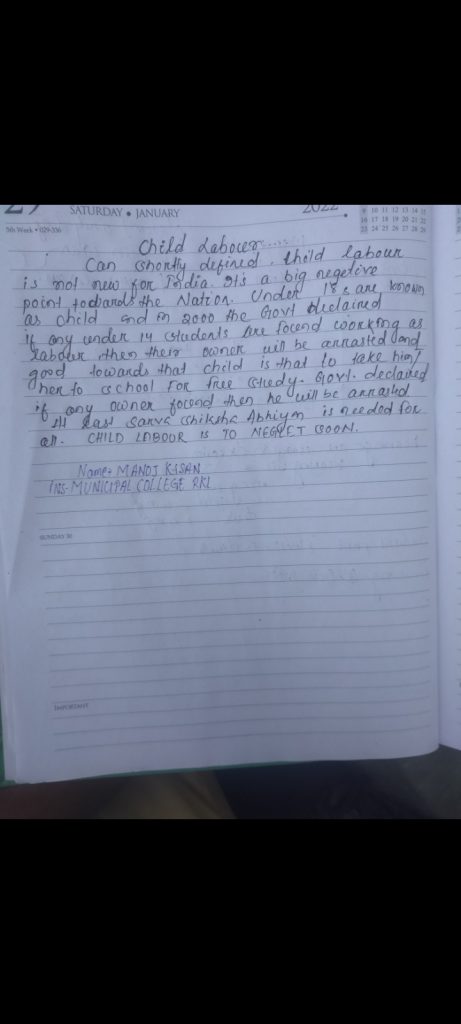 29 SATURDAY • JANUARY 2022
5th Week • 029-336
9 10 11 12 13 14 15
16 17 18 19 20 21 22
23 24 25 26 27 28 29
Child Labour
Can shortly defined. Child labour
is not new for India. It's a big negetive
point towards the Nation. Under 18 are known
as child and in 2000 the Govt declained
if any under 14 students are focend working as
labour then their owner will be arrasted and
good towards that child is that to take him/
her to school for free study. Govt. declared
if any owner focend then he will be arrasted
At last Sarva Shiksha Abhiyan is needed for
all. CHILD LABOUR IS TO NEGLET SOON.
Name- MANOJ KISAN
INS- MUNICIPAL COLLEGE RKL
SUNDAY 30
IMPORTANT